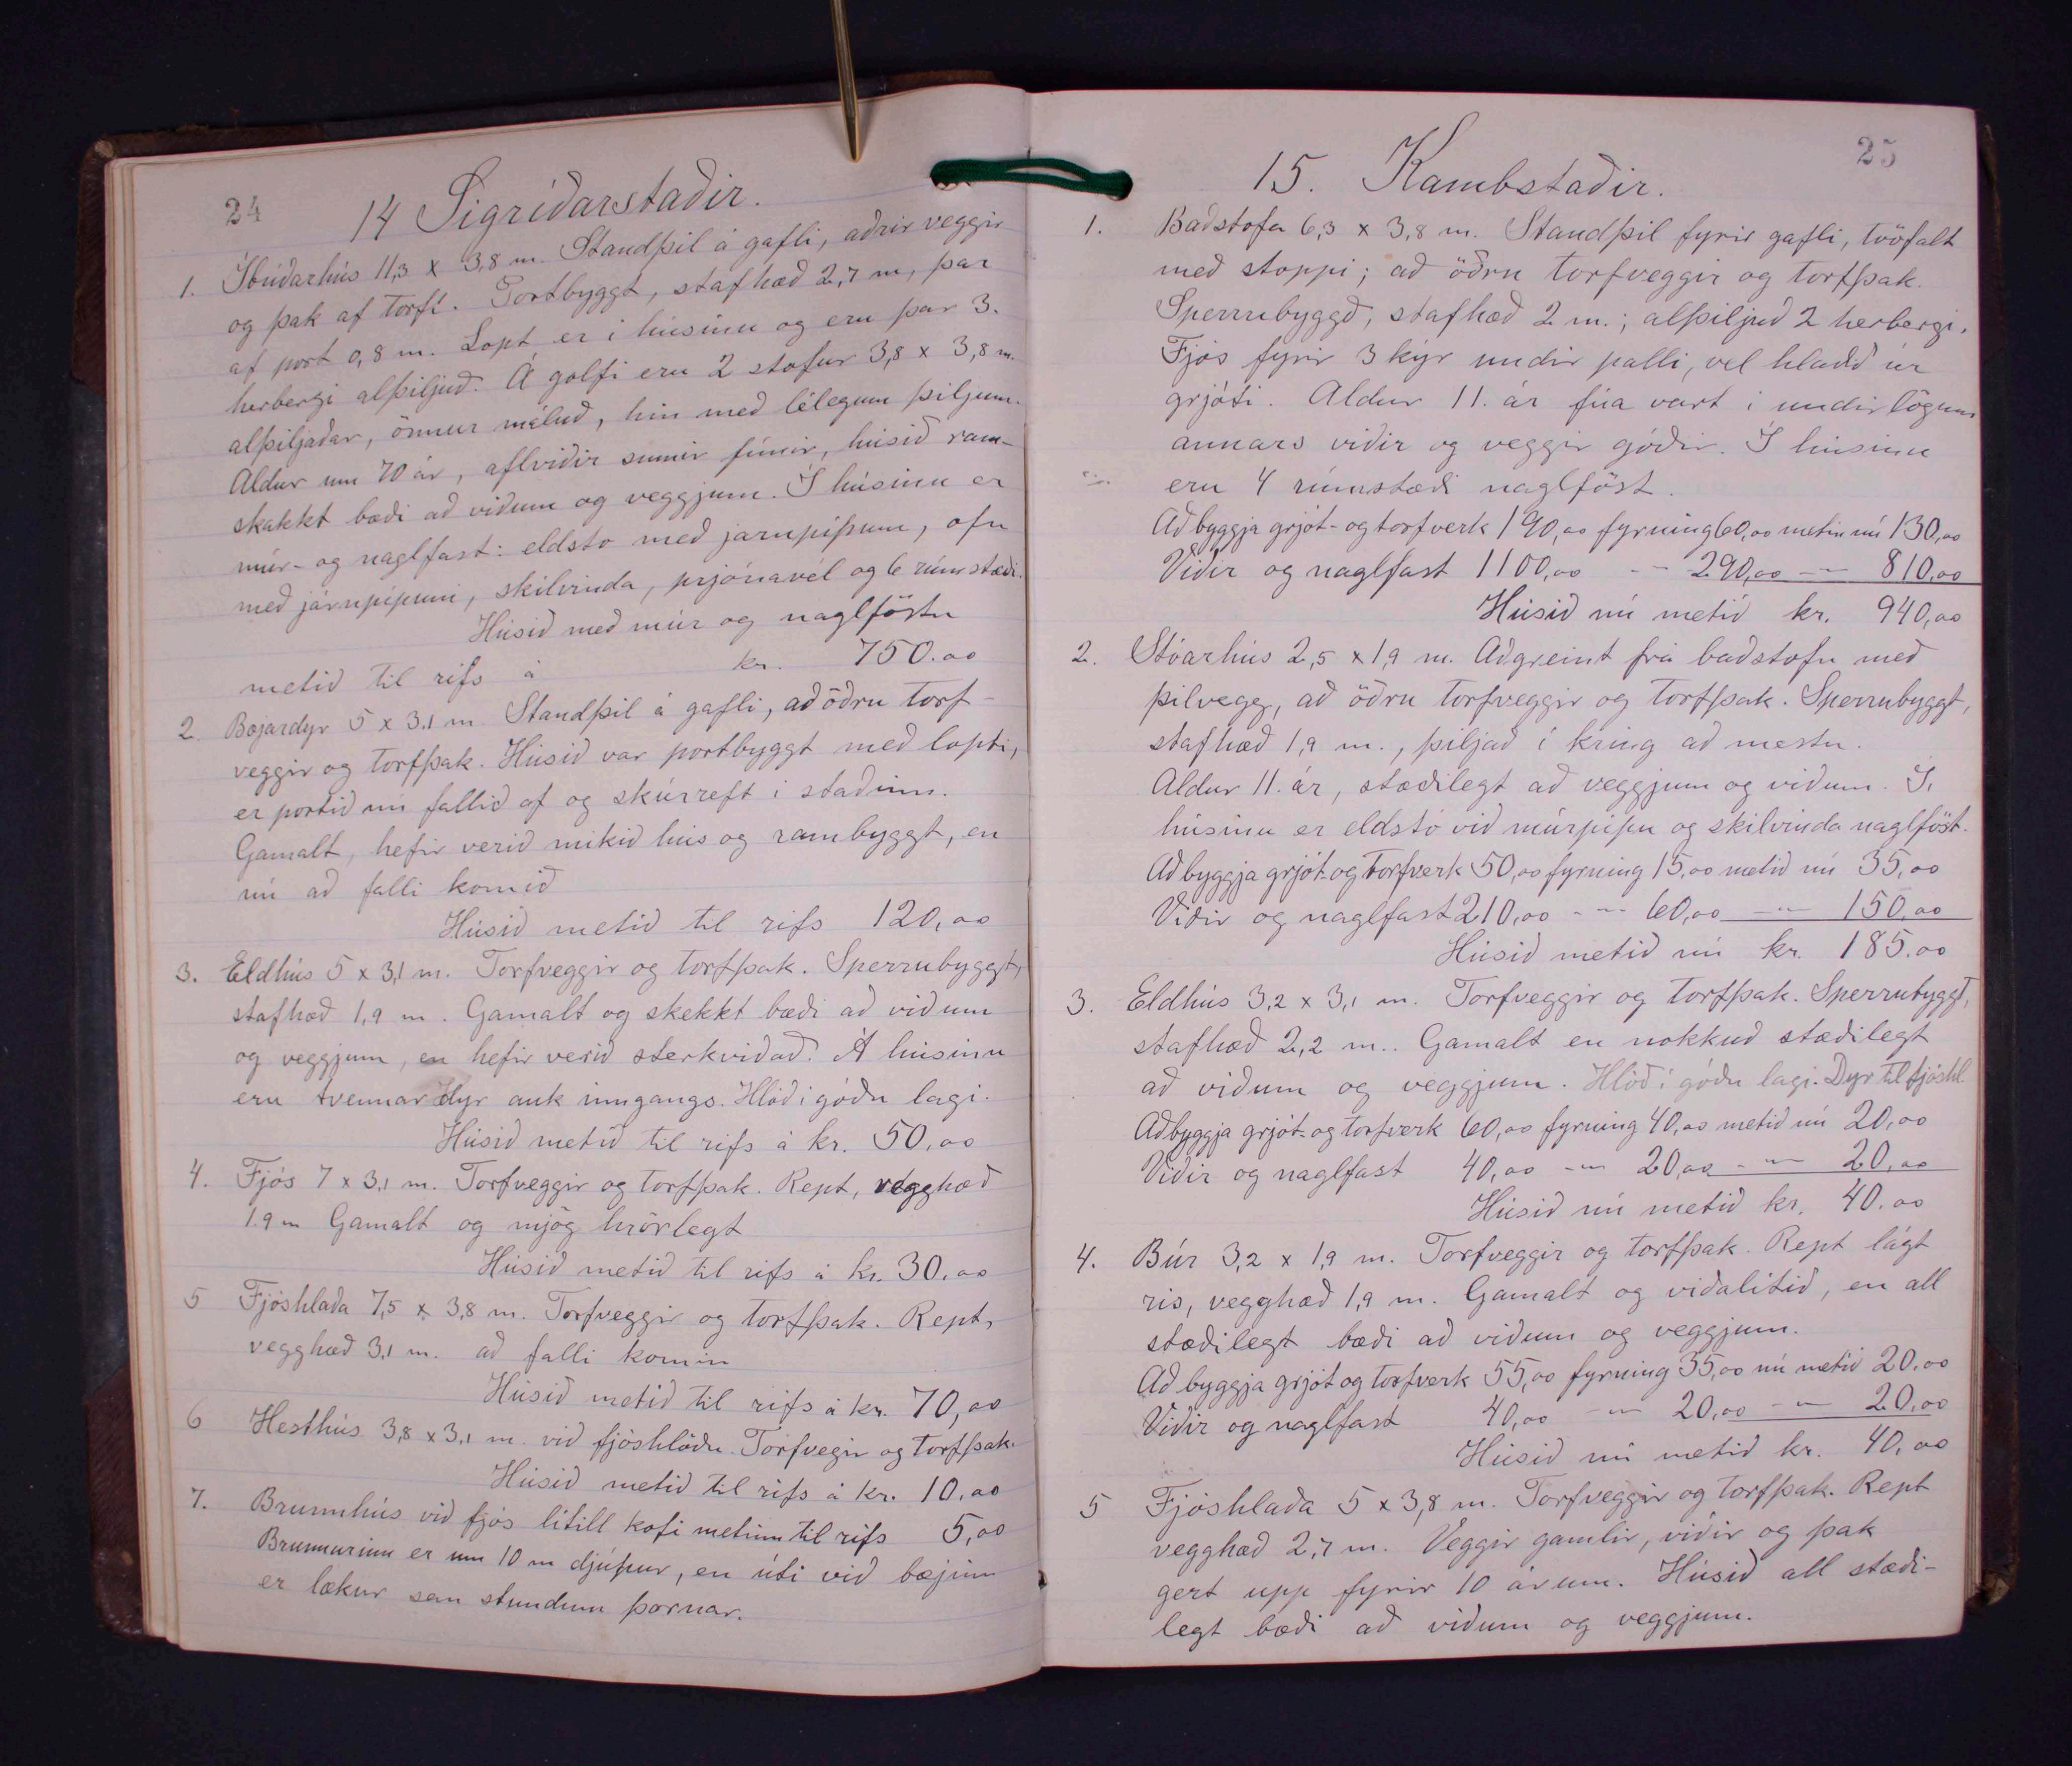 24
14 Sigríðarstaðir.
1. Íbúðarhús 11,3 x 3,8 m. Standþil á gafli, aðrir veggir
og þak af torfi. Portbyggt, stafhæð 2,7 m, þar
af port 0,8 m. Lopt er í húsinu og eru þar 3.
herbergi alþiljuð. Á gólfi eru 2 stofur 3,8 x 3,8 m.
alþiljaðar, önnur máluð, hin með lélegum þiljum.
Aldur um 70 ár, aflviðir sumir fúnir, húsið ram-
skakkt bæði að viðum og veggjum. Í húsinu er
múr- og naglfast: eldstó með járnpípum, ofn
með járnpípum, skilvinda, prjónavél og 6 rúmstæði.
Húsið með múr og naglföstu
metið til rifs á kr. 750.00
2. Bæjardyr 5 x 3.1 m. Standþil á gafli, að öðru torf-
veggir og torfþak. Húsið var portbyggt með lopti,
er portið nú fallið af og skúrreft í staðinn.
Gamalt, hefir verið mikið hús og rambyggt, en
nú að falli komið
Húsið metið til rifs 120,00
3. Eldhús 5 x 3,1 m. Torfveggir og torfþak. Sperrubyggt,
stafhæð 1,9 m. Gamalt og skekkt bæði að viðum
og veggjum, en hefir verið sterkviðað. Á húsinu
eru tvennar dyr auk inngangs. Hlóð í góðu lagi.
Húsið metið til rifs á kr. 50,00
4. Fjós 7 x 3,1 m. Torfveggir og torfþak. Rept, vegghæð
1.9 m Gamalt og mjög hrörlegt
Húsið metið til rifs á kr. 30.00
5 Fjóshlaða 7,5 x 3,8 m. Torfveggir og torfþak. Rept,
vegghæð 3,1 m. að falli komin
Húsið metið til rifs á kr. 70,00
6 Hesthús 3,8 x 3,1 m. við fjóshlöðu. Torfvegir og torfþak.
Húsið metið til rifs á kr. 10,00
7. Brunnhús við fjós lítill kofi metinn til rifs 5,00
Brunnurinn er um 10 m djúpur, en úti við bæjinn
er lækur sem stundum þornar.
25
15. Kambstaðir.
1. Baðstofa 6,3 x 3,8 m. Standþil fyrir gafli, tvöfalt
með stoppi; að öðru torfveggir og torfþak.
Sperrubyggð, stafhæð 2 m.; alþiljuð 2 herbergi.
Fjós fyrir 3 kýr undir palli, vel hlaðið úr
grjóti. Aldur 11. ár fúa vart í undirlögum
annars viðir og veggir góðir. Í húsinu
eru 4 rúmstæði naglföst.
Að byggja grjót- og torfverk 190,00 fyrning 60,00 metin nú 130,00
Viðir og naglfast 1100,00 -"- 290,00 -"- 810,00
Húsið nú metið kr. 940,00
2. Stóarhús 2,5 x 1,9 m. Aðgreint frá baðstofu með
þilvegg, að öðru torfveggir og torfþak. Sperrubyggt,
stafhæð 1,9 m., þiljað í kring að mestu.
Aldur 11. ár, stæðilegt að veggjum og viðum. Í
húsinu er eldstó við múrpípu og skilvinda naglföst.
Að byggja grjót- og torfverk 50,00 fyrning 15,00 metið nú 35,00
Viðir og naglfast 210,00 -"- 60,00 -"- 150,00
Húsið metið nú kr. 185.00
3. Eldhús 3,2 x 3,1 m. Torfveggir og torfþak. Sperrubyggt,
stafhæð 2,2 m.. Gamalt en nokkuð stæðilegt
að viðum og veggjum. Hlóð í góðu lagi. Dyr til fjóshl
Að byggja grjót- og torfverk 60,00 fyrning 40,00 metið nú 20,00
Viðir og naglfast 40,00 -"- 20,00 -"- 20,00
Húsið nú metið kr. 40.00
4. Búr 3,2 x 1,9 m. Torfveggir og torfþak. Rept lágt
ris, vegghæð 1,9 m. Gamalt og viðalítið, en all
stæðilegt bæði að viðum og veggjum.
Að byggja grjót og torfverk 55,00 fyrning 35,00 nú metið 20.00
Viðir og naglfast 40,00 -"- 20,00 -"- 20,00
Húsið nú metið kr. 40,00
5 Fjóshlaða 5 x 3,8 m. Torfveggir og torfþak. Rept
vegghæð 2,7 m. Veggir gamlir, viðir og þak
gert upp fyrir 10 árum. Húsið all stæði-
legt bæði að viðum og veggjum.